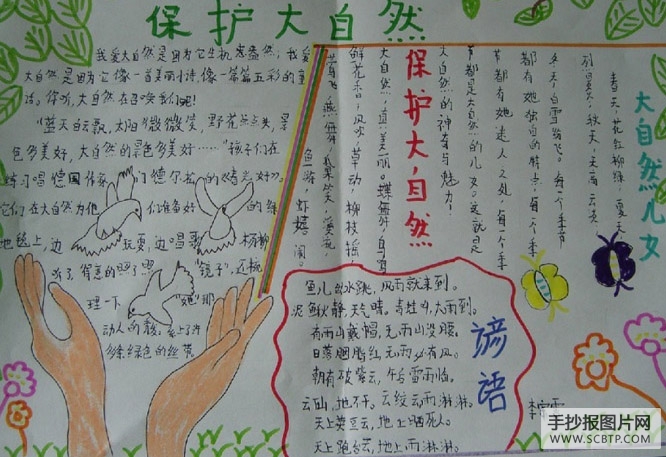 保护大自然
我爱大自然是因为它生机意盎然,我爱
大自然是因为它像一首美丽小诗,像一篇篇五彩的童
话。你听,大自然在召唤我们呢!
“蓝天白云飘,太阳微微笑,野花点点头,景
色多美好,大自然的景色多美好……”孩子们在
练习唱德国作家门德尔松的《春光好》。
它们在大自然为他们准备好的绿
地毯上,边玩耍,边唱歌。杨柳
理一下“她”那
大自然儿女
春天,花红柳绿,夏天,
冬天,白雪
都有她独自的特点,每一个季
节都有她迷人之处,每一个季
节都是大自然的儿女。这就是
大自然的神奇与魅力!
保护大自然
大自然,真美丽。蝶舞外,鸟鸣
鲜花香,风吹草动,柳枝摇
鱼游,虾嬉闹。
谚语
鱼儿出水跳,风雨就来到。
泥鳅静,天气晴。青蛙叫,大雨到。
有雨山戴帽,无雨山没腰。
日落胭脂红,无雨必有风。
朝有破絮云,午后雷雨临。
云下山,地不干。云绞云,雨淋淋。
天上黄豆云,地上晒死人。
天上跑台云,地上雨淋淋。
手抄报图片网
WWW.SCBTP.COM